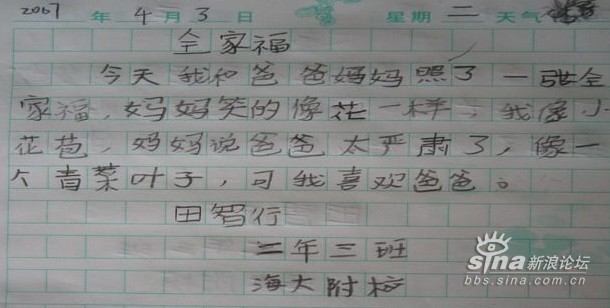 2007 年 4 月 3 日 星期 二 天气
全家福
今天我和爸爸妈妈照了一张全
家福，妈妈笑的像花一样，我像小
花苞，妈妈说爸爸太严肃了，像一
个青菜叶子，可我喜欢爸爸。
田智行
二年三班
海大附校
sina 新浪论坛
bbs.sina.com.cn